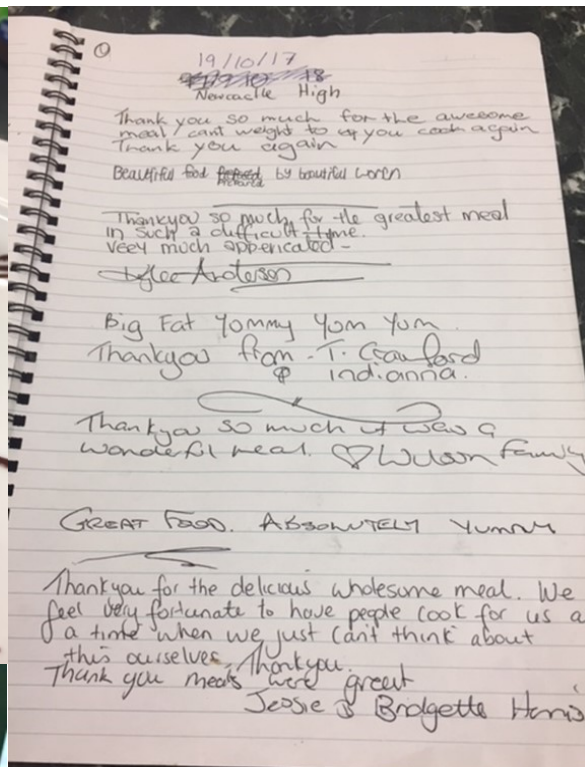 ①
19/10/17
Newcastle High
Thank you so much for the awesome
meal / cant weight to you cook again
Thank you again
Beautiful food by beautiful women
Thankyou so much, for the greatest meal
in such a difficult time.
Veey much appericated -
Anderson
Big Fat Yommy Yum Yum
Thankyou from - T. Crawford
& indianna.
Thankyou so much it was a
wonderful meal. ♡ Wilson Family
GREAT FOOD. ABSOLUTELY YUMMY
Thankyou for the delicious wholesome meal. We
feel very fortunate to have people cook for us a
a time when we just can't think about
this ourselves. Thankyou.
Thank you meals were great
Jessie & Bridgette Harris